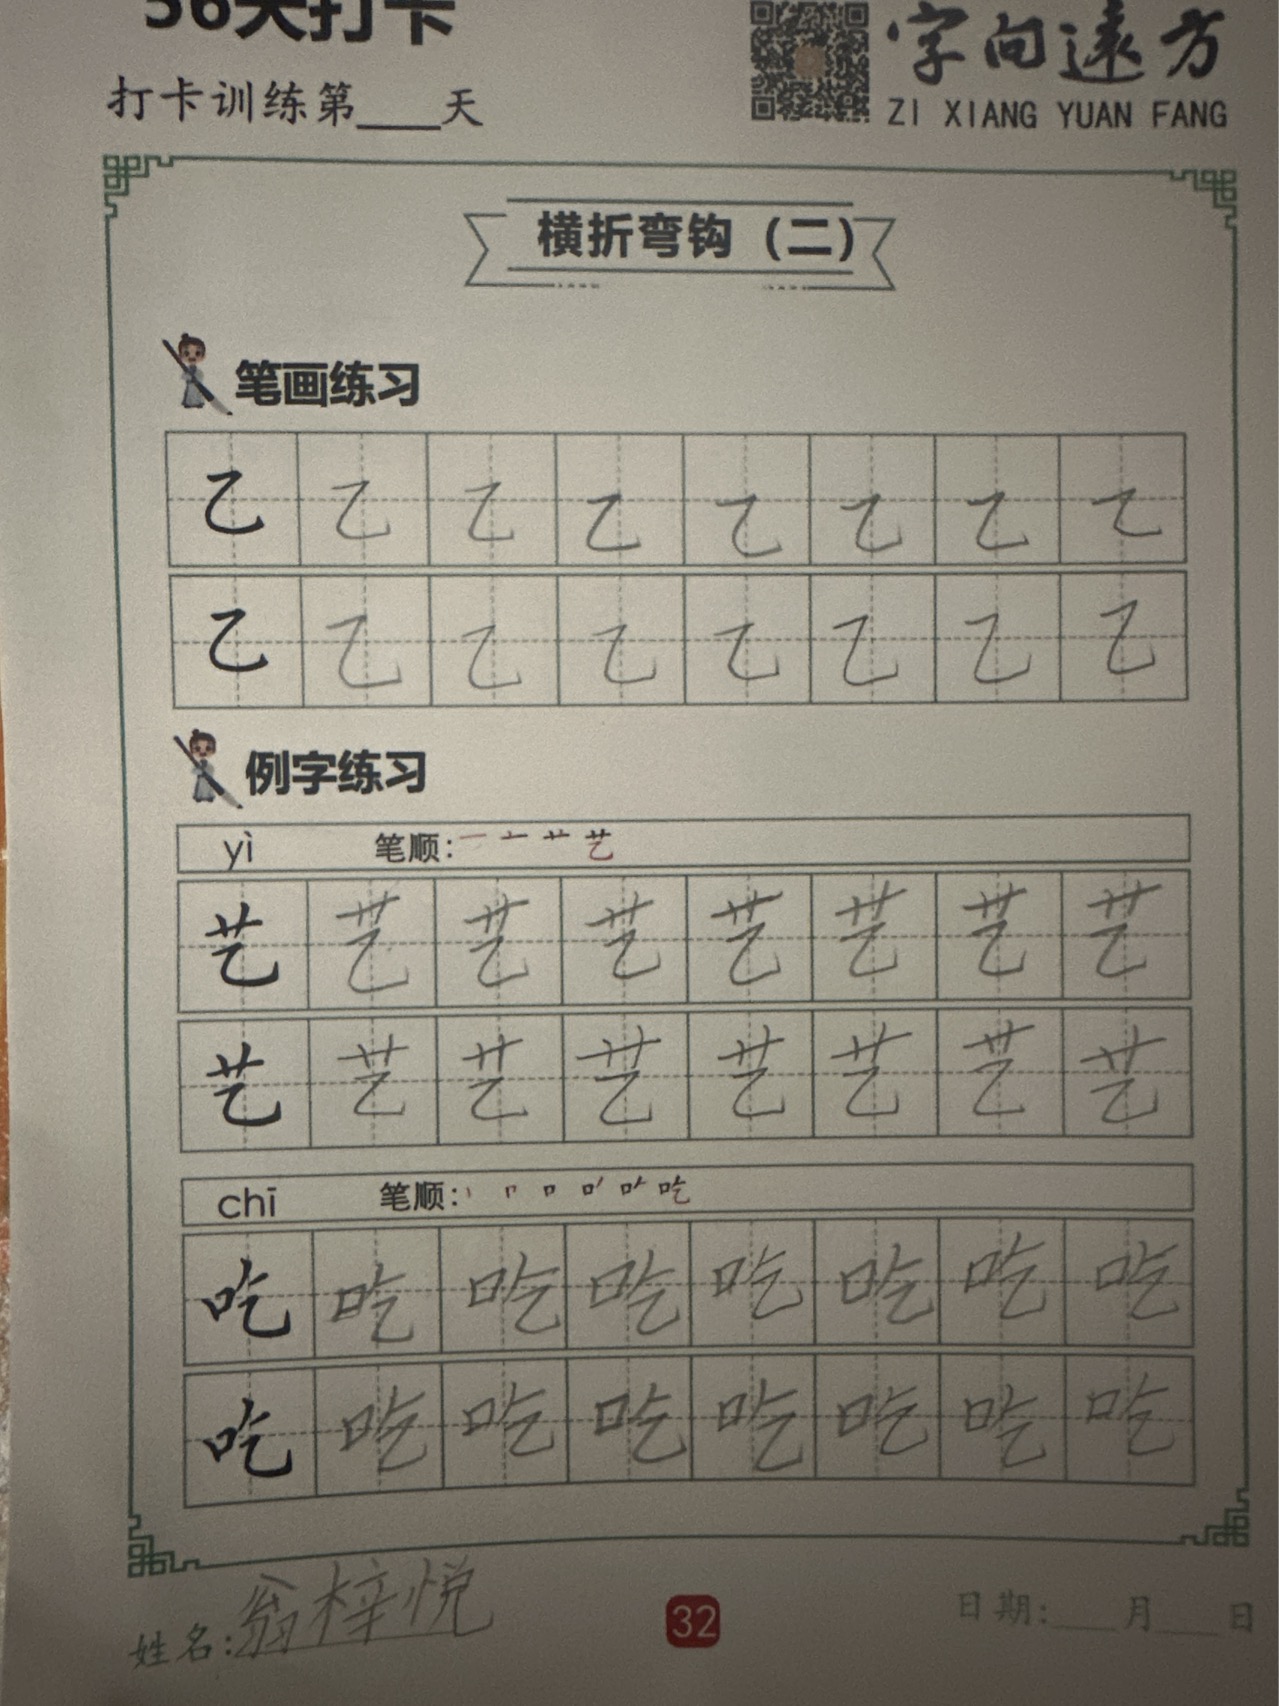 56天打卡
字向遠方
打卡训练第____天
ZI XIANG YUAN FANG
横折弯钩（二）
笔画练习
乙 乙 乙 乙 乙 乙 乙 乙
乙 乙 乙 乙 乙 乙 乙 乙
例字练习
yì 笔顺: 一 艹 艺
艺 艺 艺 艺 艺 艺 艺 艺
艺 艺 艺 艺 艺 艺 艺 艺
chī 笔顺: 丨 口 吃
吃 吃 吃 吃 吃 吃 吃 吃
吃 吃 吃 吃 吃 吃 吃 吃
姓名:翁梓悦
32
日期:____月____日